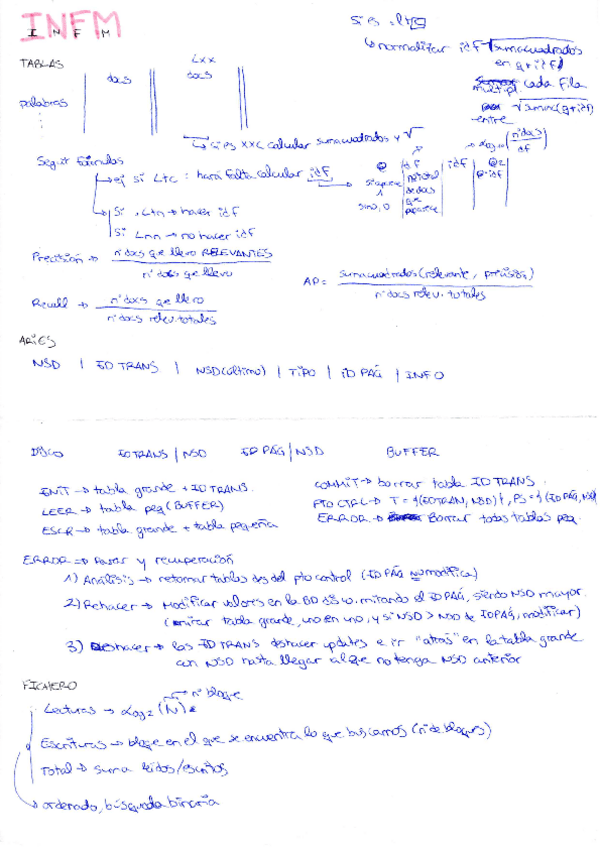 INFM
I N F M
TABLAS
docs
Lxx
docs
palabras
Si es
normalizar idf √sumacuadrados
en q+idf
multipl. cada fila
entre
→ si es xxc calcular sumacuadrados y √
Seguir fórmulas
→ ej si Ltc : hará falta calcular idf
si aparece 1
sino, 0
df
nº total de docs que aparece
idf
log10 (nº docs / df)
Q·idf
→ Si Ltn → hacer idf
Si Lnn → no hacer idf
Precisión → nº docs que llevo RELEVANTES
nº docs que llevo
AP = sumacuadrados(relevante, precisión)
nº docs relev. totales
Recall → nº docs que llevo
nº docs relev. totales
ARIES
NSD | ID TRANS | NSD(último) | TIPO | ID PÁG | INFO
DISCO ID TRANS | NSD ID PÁG | NSD BUFFER
INIT → tabla grande + ID TRANS.
LEER → tabla peq (BUFFER)
ESCR → tabla grande + tabla pequeña
COMMIT → borrar tabla ID TRANS.
PTO CTRL → T = {(IDTRAN, NSD)}, PS = {(ID PÁG, NSD
ERROR → Borrar todas tablas peq.
ERROR → Parar y recuperación
1) Análisis → retomar tablas des del pto control (ID PÁG NO modifica)
2) Rehacer → Modificar valores en la BD disco. mirando el ID PÁG, siendo NSD mayor.
(mirar tabla grande, uno en uno, y si NSD > NSD de ID PÁG, modificar)
3) Deshacer → las ID TRANS deshacer updates e ir "atrás" en la tabla grande
con NSD hasta llegar al que no tenga NSD anterior
FICHERO
→ nº bloque
Lecturas → Log2 (N)
Escrituras → bloque en el que se encuentra lo que buscamos (nº de bloques)
Total → suma leidos/escritos
→ ordenado, búsqueda binaria